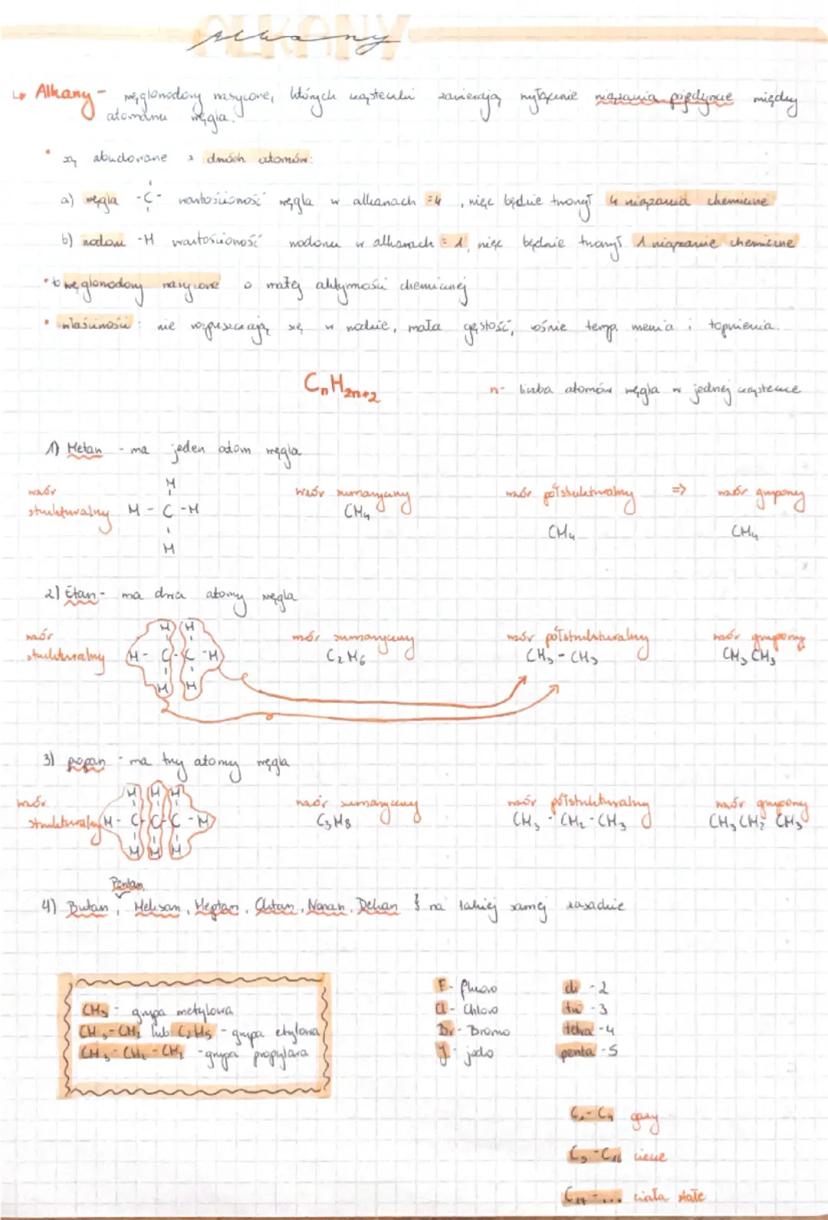 ALKANY
Alkany
↳ Alkany - węglowodory nasycone, których cząsteczki zawierają wyłącznie wiązania pojedyncze między
atomami węgla.
• są zbudowane z dwóch atomów:
a) węgla -C- wartościowość węgla w alkanach =4, więc będzie tworzył 4 wiązania chemiczne
b) wodoru -H wartościowość wodoru w alkanach = 1, więc będzie tworzył 1 wiązanie chemiczne
• to węglowodory nasycone o małej aktywności chemicznej
• właściwości: nie rozpuszczają się w wodzie, mała gęstość, rośnie temp. wrzenia i topnienia.
CnH2n+2 n- liczba atomów węgla w jednej cząsteczce
1) Metan - ma jeden atom węgla
wzór strukturalny wzór sumaryczny wzór półstrukturalny => wzór grupowy
H
H - C - H CH4 CH4 CH4
H
2) Etan - ma dwa atomy węgla
wzór strukturalny wzór sumaryczny wzór półstrukturalny wzór grupowy
H H
H - C - C - H C2H6 CH3 - CH3 CH3 CH3
H H
3) propan - ma trzy atomy węgla
wzór strukturalny wzór sumaryczny wzór półstrukturalny wzór grupowy
H H H
H - C - C - C - H C3H8 CH3 - CH2 - CH3 CH3 CH2 CH3
H H H
Pentan
4) Butan, Heksan, Heptan, Oktan, Nonan, Dekan } na takiej samej zasadzie
CH3 - grupa metylowa
CH3-CH2 lub C2H5 - grupa etylowa
CH3-CH2-CH2 - grupa propylowa
F - fluoro
Cl - Chloro
Br - Bromo
J - jodo
di - 2
tri - 3
tetra - 4
penta - 5
C1-C4 gazy
C5-C16 ciecze
C17-... ciała stałe